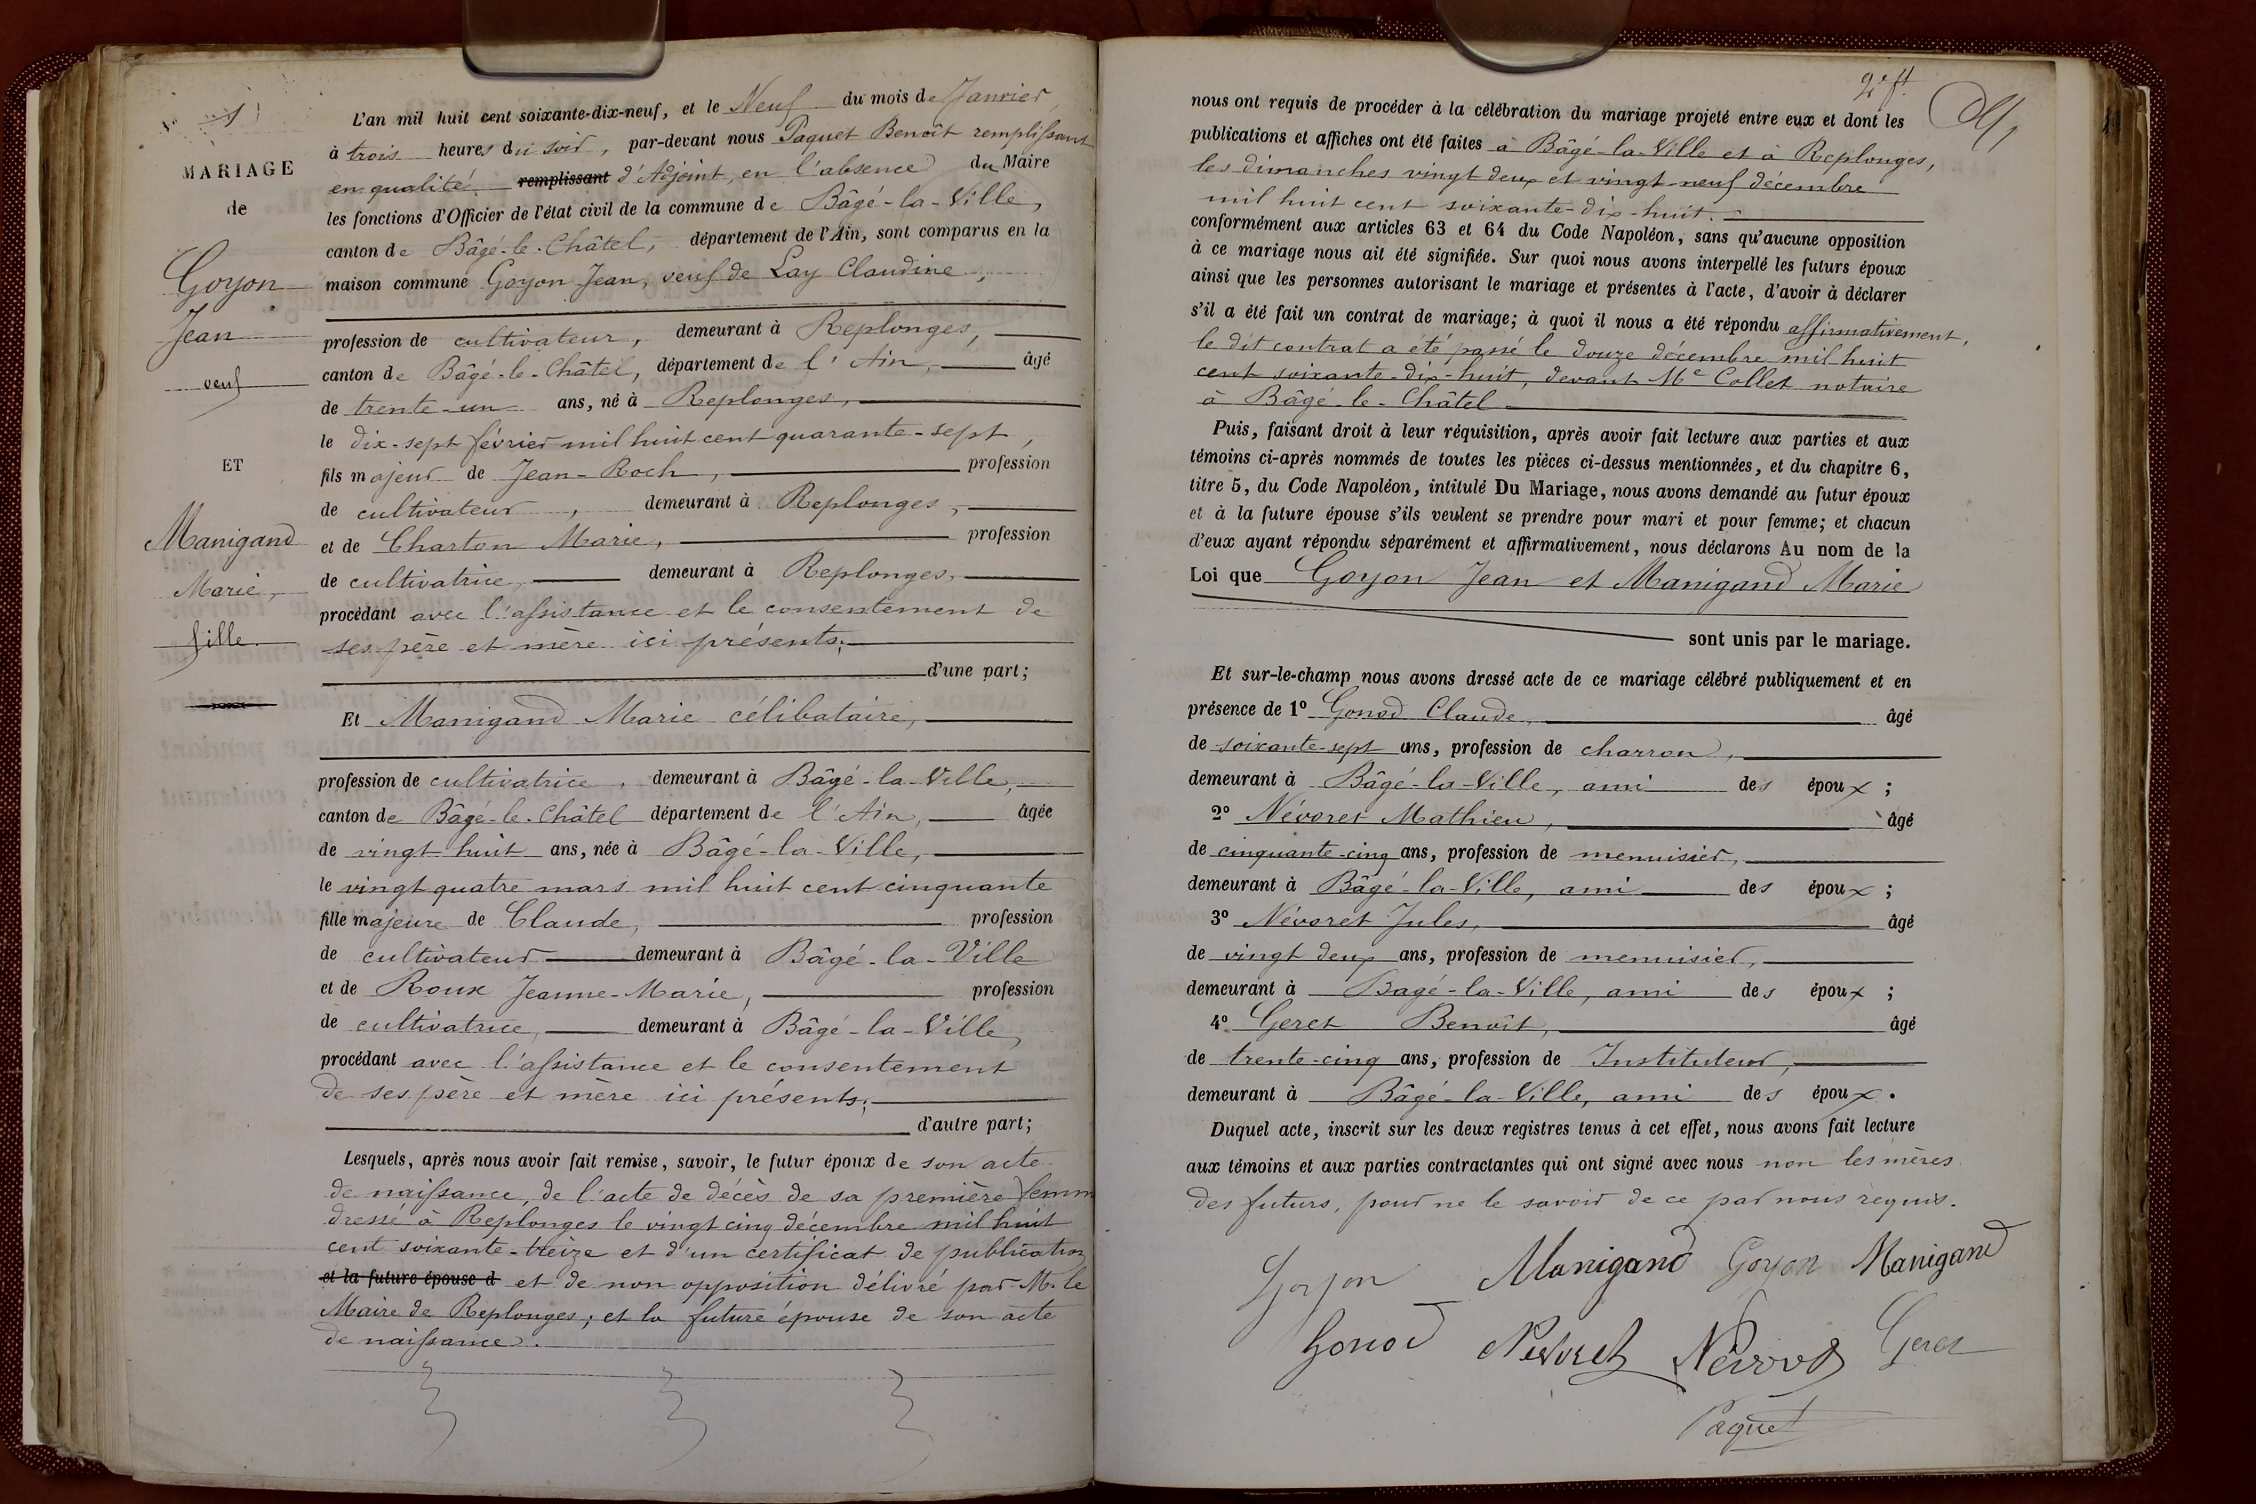 N° 1
MARIAGE
de
Goyon
Jean
veuf
ET
Manigand
Marie,
fille.
L'an mil huit cent soixante-dix-neuf, et le Neuf du mois de Janvier,
à trois heures du soir, par-devant nous Paquet Benoît remplissant
en qualité remplissant d'Adjoint, en l'absence du Maire
les fonctions d'Officier de l'état civil de la commune de Bâgé-la-Ville,
canton de Bâgé-le-Châtel, département de l'Ain, sont comparus en la
maison commune Goyon Jean, veuf de Lay Claudine,
profession de cultivateur, demeurant à Replonges,
canton de Bâgé-le-Châtel, département de l'Ain, âgé
de trente-un ans, né à Replonges,
le dix-sept février mil huit cent quarante-sept,
fils majeur de Jean-Roch, profession
de cultivateur, demeurant à Replonges,
et de Charton Marie, profession
de cultivatrice, demeurant à Replonges,
procédant avec l'assistance et le consentement de
ses père et mère ici présents;
d'une part;
Et Manigand Marie célibataire,
profession de cultivatrice, demeurant à Bâgé-la-Ville,
canton de Bâgé-le-Châtel département de l'Ain, âgée
de vingt-huit ans, née à Bâgé-la-Ville,
le vingt quatre mars mil huit cent cinquante
fille majeure de Claude, profession
de cultivateur demeurant à Bâgé-la-Ville
et de Roux Jeanne-Marie, profession
de cultivatrice, demeurant à Bâgé-la-Ville,
procédant avec l'assistance et le consentement
de ses père et mère ici présents;
d'autre part;
Lesquels, après nous avoir fait remise, savoir, le futur époux de son acte
de naissance, de l'acte de décès de sa première femm
dressé à Replonges le vingt cinq décembre mil huit
cent soixante-treize et d'un certificat de publication
et la future épouse d et de non opposition délivré par M. le
Maire de Replonges; et la future épouse de son acte
de naissance.
2e f.
nous ont requis de procéder à la célébration du mariage projeté entre eux et dont les
publications et affiches ont été faites à Bâgé-la-Ville et à Replonges,
les dimanches vingt deux et vingt-neuf décembre
mil huit cent soixante-dix-huit.
conformément aux articles 63 et 64 du Code Napoléon, sans qu'aucune opposition
à ce mariage nous ait été signifiée. Sur quoi nous avons interpellé les futurs époux
ainsi que les personnes autorisant le mariage et présentes à l'acte, d'avoir à déclarer
s'il a été fait un contrat de mariage; à quoi il nous a été répondu affirmativement,
le dit contrat a été passé le douze décembre mil huit
cent soixante-dix-huit, devant Me Collet notaire
à Bâgé-le-Châtel
Puis, faisant droit à leur réquisition, après avoir fait lecture aux parties et aux
témoins ci-après nommés de toutes les pièces ci-dessus mentionnées, et du chapitre 6,
titre 5, du Code Napoléon, intitulé Du Mariage, nous avons demandé au futur époux
et à la future épouse s'ils veulent se prendre pour mari et pour femme; et chacun
d'eux ayant répondu séparément et affirmativement, nous déclarons Au nom de la
Loi que Goyon Jean et Manigand Marie
sont unis par le mariage.
Et sur-le-champ nous avons dressé acte de ce mariage célébré publiquement et en
présence de 1° Gonod Claude, âgé
de soixante-sept ans, profession de charron,
demeurant à Bâgé-la-Ville, ami des époux;
2° Névoret Mathieu, âgé
de cinquante-cinq ans, profession de menuisier,
demeurant à Bâgé-la-Ville, ami des époux;
3° Névoret Jules, âgé
de vingt deux ans, profession de menuisier,
demeurant à Bagé-la-Ville, ami des époux;
4° Geret Benoit, âgé
de trente-cinq ans, profession de Instituteur,
demeurant à Bâgé-la-Ville, ami des époux.
Duquel acte, inscrit sur les deux registres tenus à cet effet, nous avons fait lecture
aux témoins et aux parties contractantes qui ont signé avec nous non les mères
des futurs, pour ne le savoir de ce par nous requis.
Goyon Manigand Goyon Manigand
Gonod Nevoret Névoret Geret
Paquet